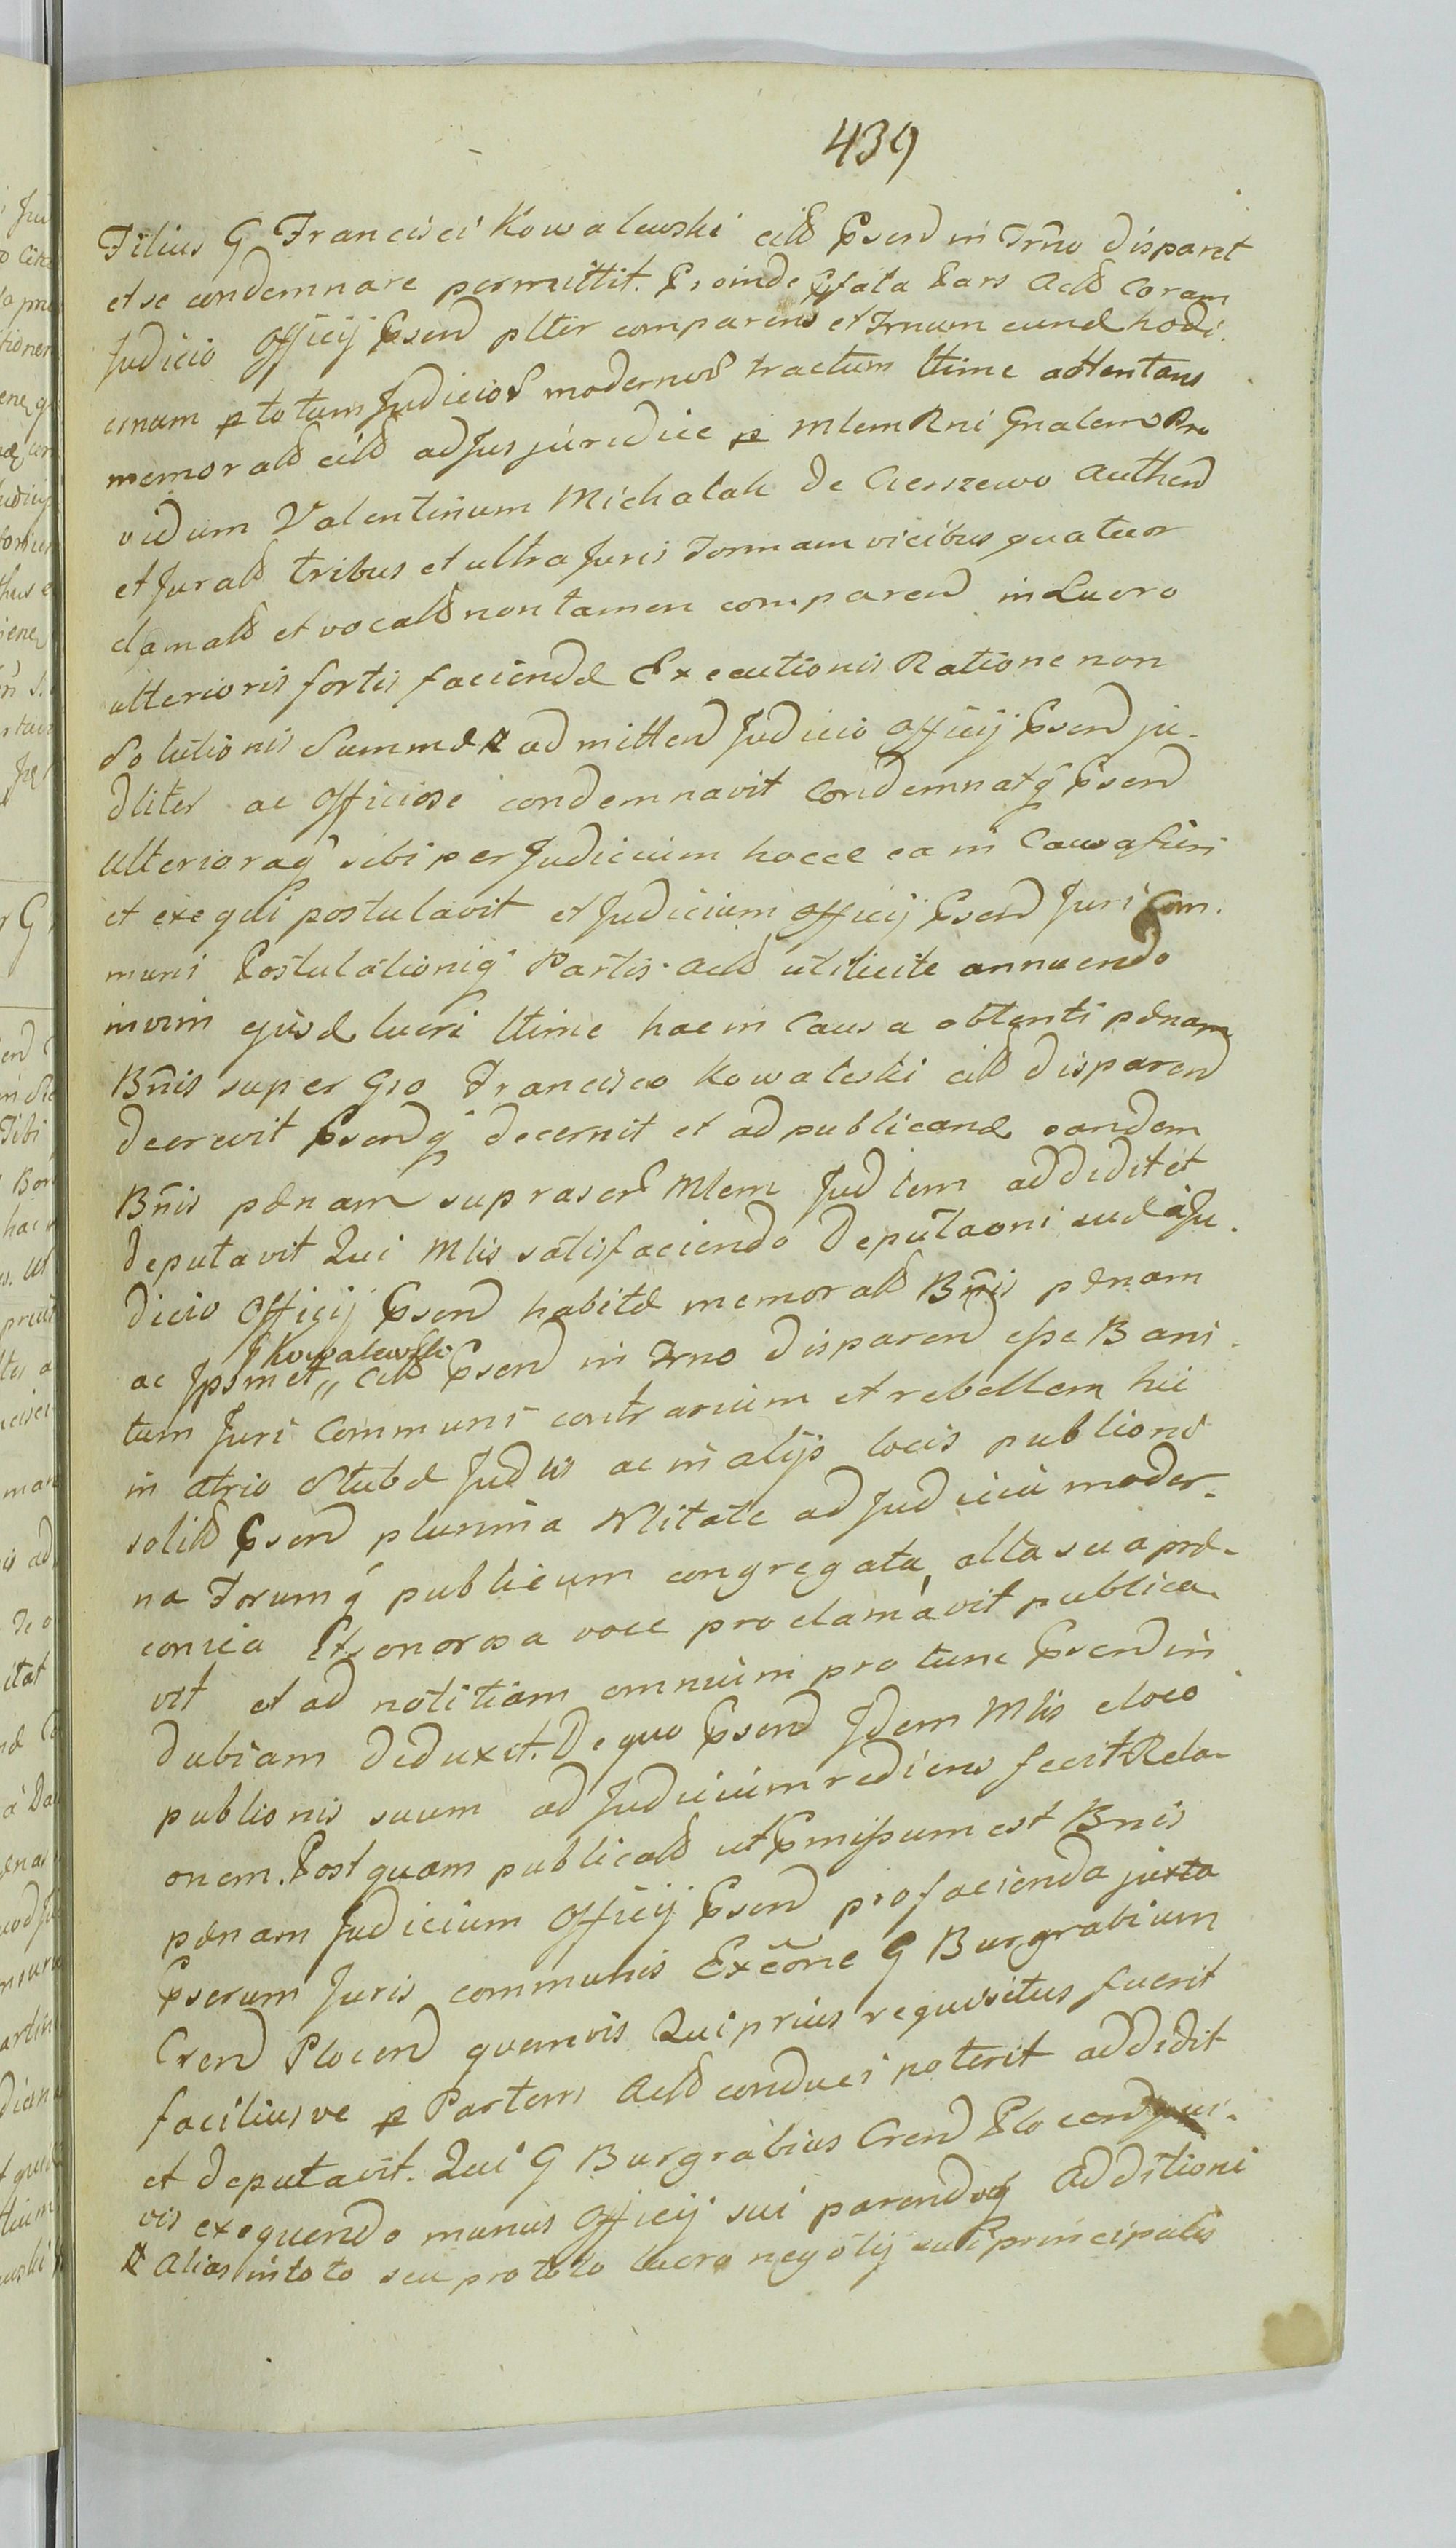 439
Filius G Francisci Kowalewski citt Psend in Trno disparet
et se condemnare permittit. Proinde Pfata Pars Actt coram
Judicio Officij Psend plter comparens et Trnum eund hodi.
ernum p totum Judicior modernor tractum ltime attentans
memoratt citt ad Jus juridice p Mlem Rni Gnalem Pro
vidum Valentinum Michalak de Cieszewo Authen
et Juratt tribus et ultra Juris Formam vicibus quatuor
clamatt et vocatt non tamen comparend in Lucro
ulterioris fortis faciendæ Executionis Ratione non
Solutionis Summæ admittend Judicio Officij Psend ju-
dliter ac Officiose condemnavit Condemnatq Psend
Ulterioraq sibi per Judicium hocce ea in Causa fieri
et exequi postulavit et Judicium Officij Psend Juri Com.
muni Postulationiq Partis Actt uti licite annuendo
in vim ejusd lucri ltime hac in Causa obtenti pænam
Bnis super Gso Francisco Kowaleski citt disparend
decrevit Psendq decernit et ad publicand eandem
Bnis pænam suprascr Mlem Judlem addidit et
deputavit Qui Mlis satisfaciendo Deputaoni suæ a Ju.
dicio Officij Psend habitæ memoratt Bnis pænam
G Kowalewski
ac Ipsmet,, Citt Psend in Trno disparend esse Bani.
tum Juri Communi contrarium et rebellem hic
in atrio Stubæ Judlis ac in alijs locis publioni
solitt Psend plurima Nlitate ad Judicia moder-
na Forumq publicum congregata, alta sua præ-
conica et sonorosa voce proclamavit publica-
vit et ad notitiam omnium pro tunc Psend in
dubiam deduxit. De quo Psend Idem Mlis e loco
publionis suum ad Judicium rediens fecit Rela-
onem. Postquam publicatt ut Pmissum est Bnis
pænam Judicium Officij Psend pro facienda juxta
Pscrum Juris communis Exeone G Burgrabium
Cren Plocen quemvis Qui prius requisitus fuerit
faciliusve p Partem Actt conduci poterit addidit
et deputavit. Qui G Burgrabius Cren Plocen qui-
vis exequendo munus Officij sui parendoq Additioni
Alias in toto seu pro toto lucro negotij sui principalis